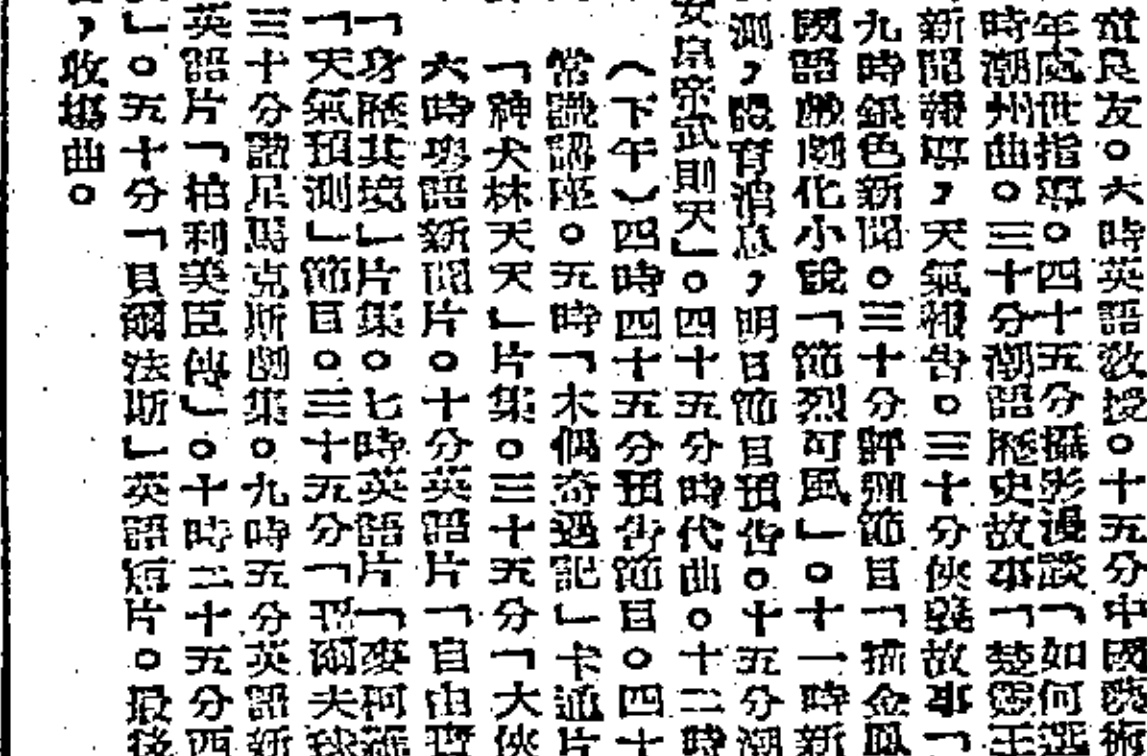 良友。六時英語敎授。十五分中國藝術
年處世指導。四十五分攝影漫談「如何選
時潮州曲。三十分潮語歷史故事「楚靈王
新聞報導,天氣報告。三十分俠義故事「
九時銀色新聞。三十分節目「插金鳳
國語戲劇化小說「節烈可風」。十一時新
測,育消息,明日節目預告。十五分潮
女皇帝武則天」。四十五分時代曲。十二時
(下午)四時四十五分預告節目。四十
常識講座。五時「木偶奇遇記」卡通片
「神犬林天天」片集。三十五分「大俠
六時粵語新聞片。十分英語片「自由寶
「身歷其境」片集。七時英語片「麥柯
「天氣預測」節目。三十五分「爾夫球
三十分諧星馬克斯劇集。九時五分英語新
英語片「柏利美臣傳」。十時二十五分西
」。五十分「貝爾法斯」英語短片。最後
,收場曲。